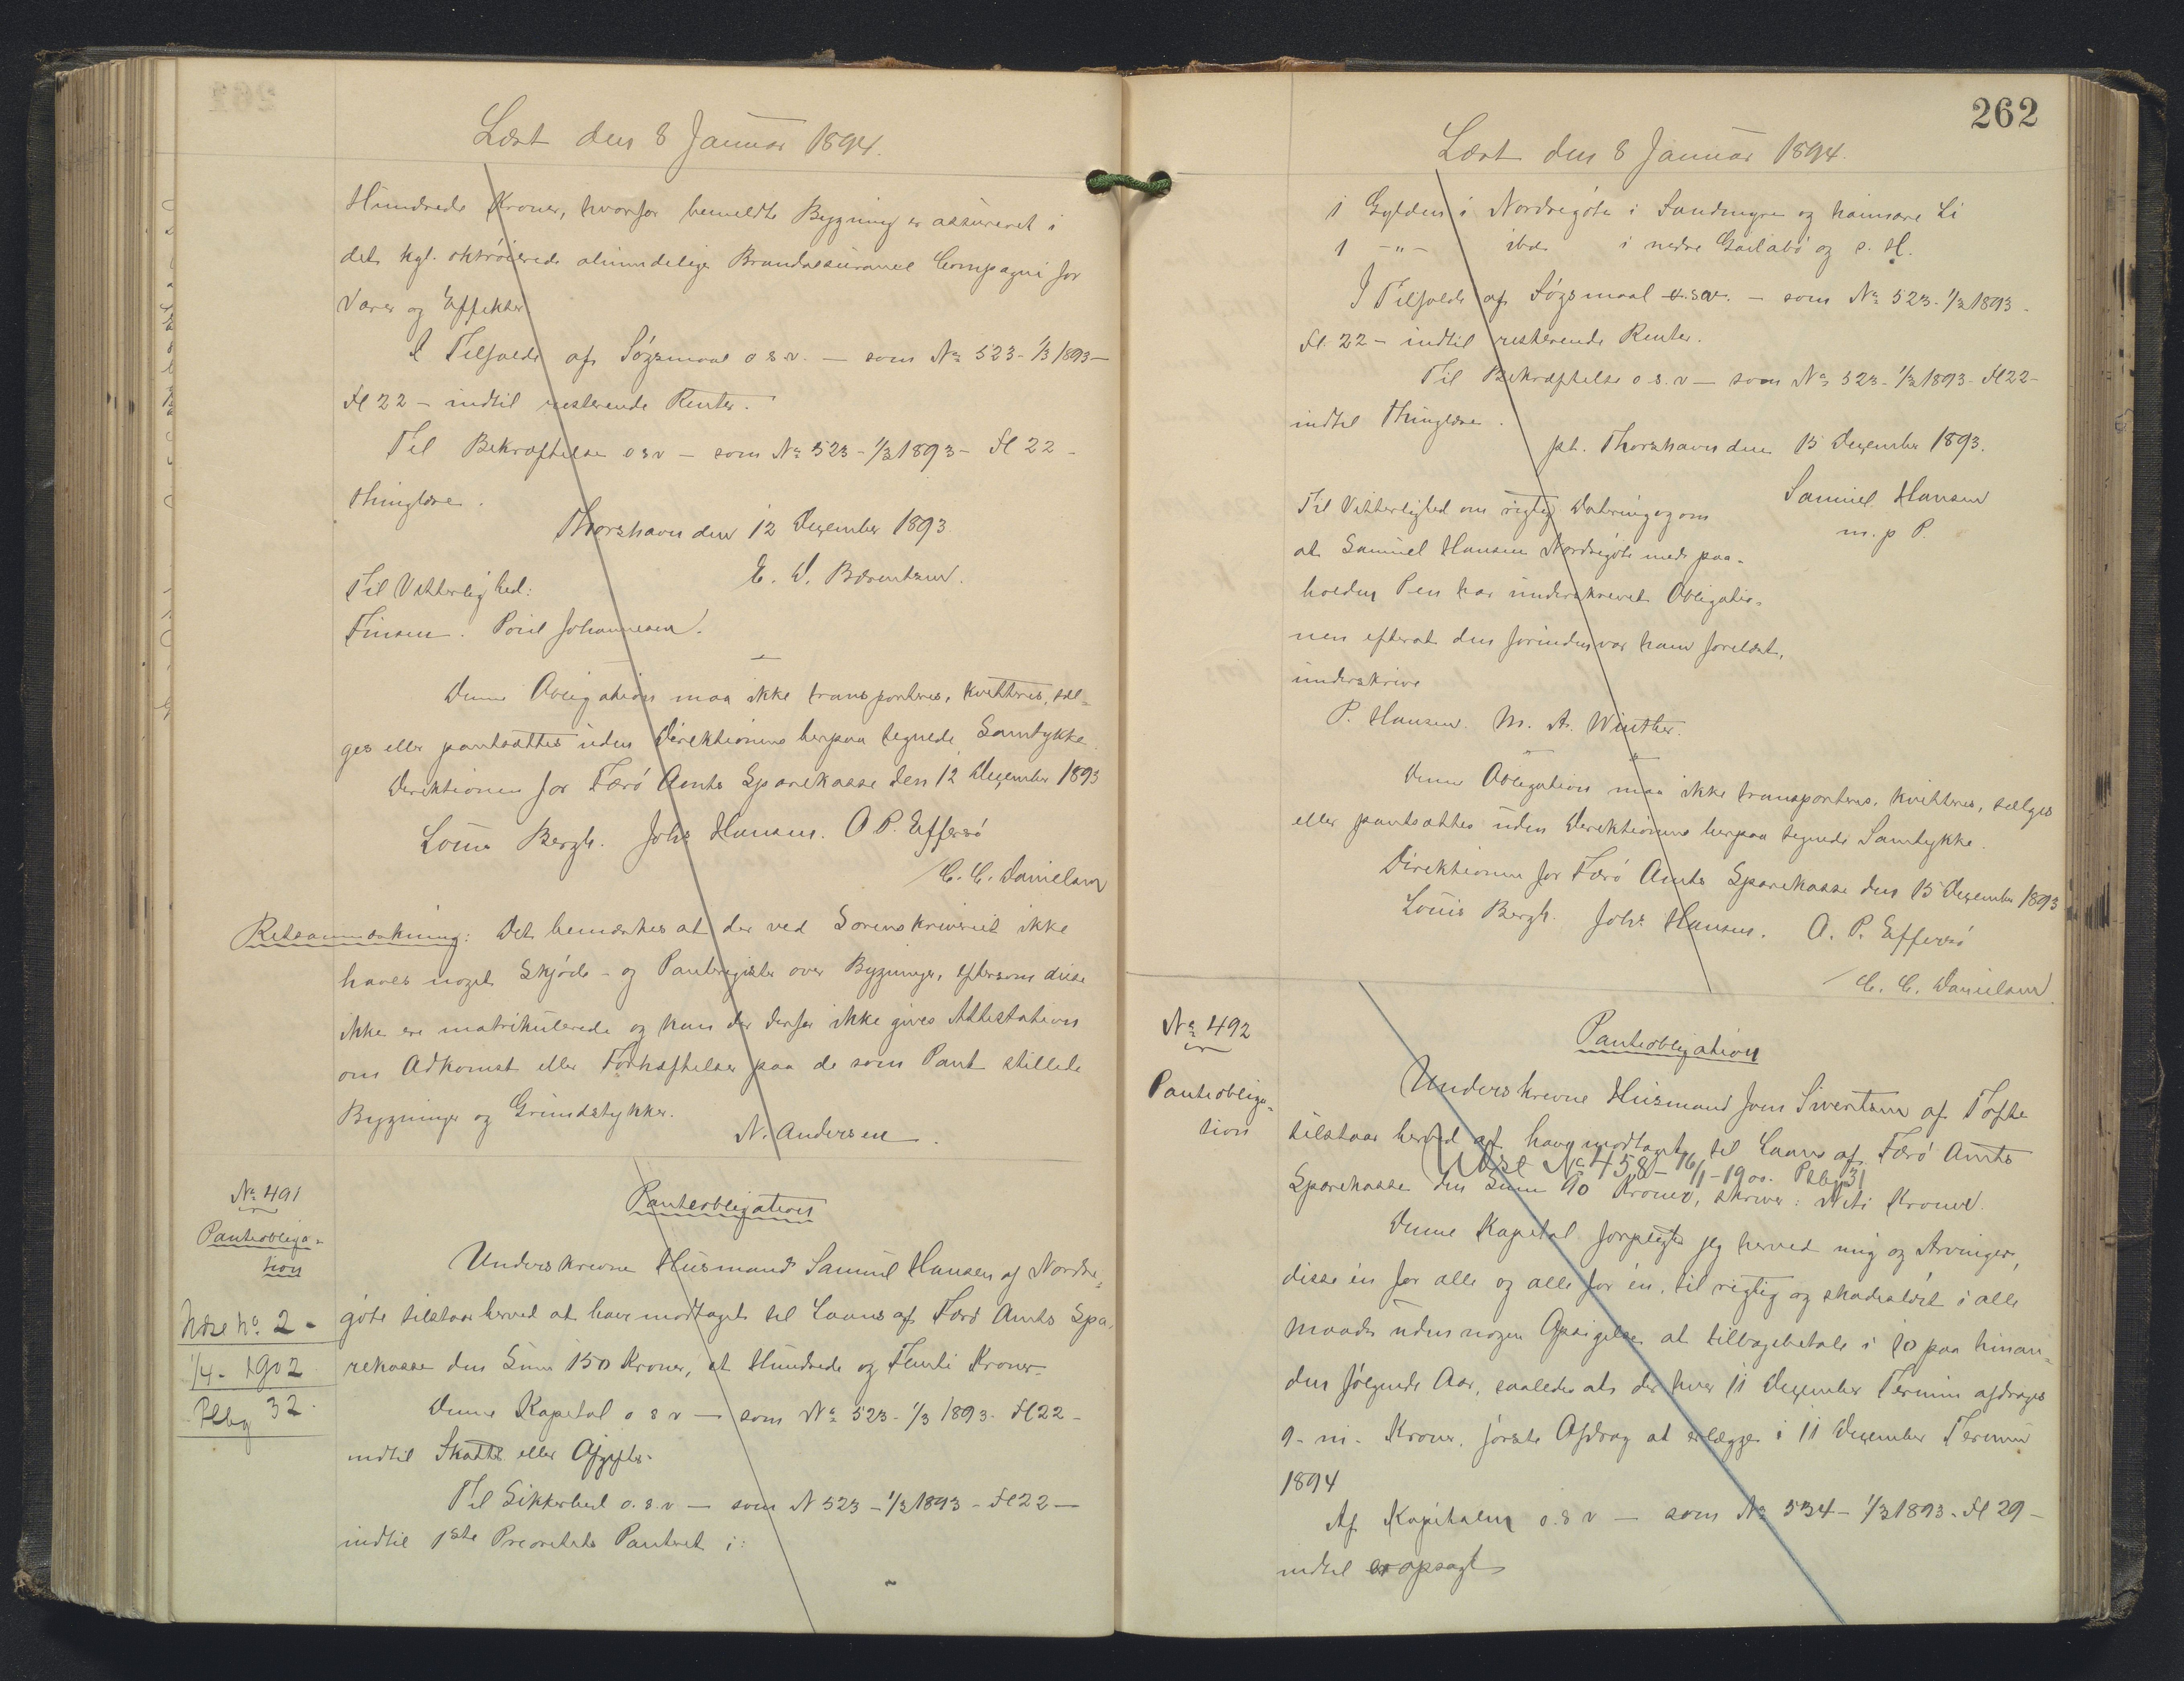 Læst den 8 Januar 1894.
Hundrede Kroner, hvorfor bemeldte Bygning er assureret i
det kgl. oktroierede almindelige Brandassurance Compagni for
Varer og Effekter
I Tilfælde af Søgsmaal o s v. — som No 523 - 1/3 1893 —
Fl 22 — indtil resterende Renter.
Til Bekræftelse o s v — som No 523 - 1/3 1893 - Fl 22 -
thinglæse.
Thorshavn den 12 Dezember 1893
Til Vitterlighed:
E. D. Bærentsen.
Finsen. Poul Johannesen.
Denne Obligation maa ikke transporteres, kvitteres, sæl=
ges eller pantsættes uden Direktionens herpaa tegnede Samtykke.
Direktionen for Færø Amts Sparekasse den 12 Dezember 1893
Louis Bergh. Johs Hansen. O P. Effersö
/ C. C. Danielsen
Retsanmærkning: Det bemærkes at der ved Sorenskriveriet ikke
haves noget Skjøde- og Panteregister over Bygninger, eftersom disse
ikke ere matrikulerede og kan der derfor ikke gives Attestation
om Adkomst eller Forhæftelser paa de som Pant stillede
Bygninger og Grundstykker.
N. Andersen.
No 491
Panteobliga=
tion
Udse No. 2 -
1/4 - 1902
Pbg 32.
Panteobligation
Underskrevne Husmand Samuel Hansen af Nordre=
gøte tilstaar herved at have modtaget til Laans af Færø Amts Spa=
rekasse den Sum 150 Kroner, et Hundrede og Femti Kroner
Denne Kapital o s v — som No 523 - 1/3 1893 - Fl 22 -
indtil Skatter eller Afgifter.
Til Sikkerhed o. s. v — som N 523 - 1/3 1893 - Fl 22 —
indtil 1ste Prioritets Panteret i:
262
Læst den 8 Januar 1894.
1 Gylden i Nordregöte i Sandmyre og Li
1 -"- ibd i nedre og s. H.
I Tilfælde af Søgsmaal o.s.v. — som No 523 - 1/3 1893.
Fl 22 - indtil resterende Renter.
Til Bekræftelse o. s. v — som No 523 - 1/3 1893 - Fl 22 -
indtil thinglæse.
pt. Thorshavn den 15 Dezember 1893.
Til Vitterlighed om rigtig Datering og om
Samuel Hansen
at Samuel Hansen Nordregöte med paa-
m. p P.
holden Pen har underskrevet Obligatio=
nen efterat den forinden var ham forelæst,
underskrive
P. Hansen. M. A. Winther.
Denne Obligation maa ikke transporteres, kvitteres, sælges
eller pantsættes uden Direktionens herpaa tegnede Samtykke.
Direktionen for Færø Amts Sparekasse den 15 Dezember 1893
Louis Bergh. Johs Hansen. O. P. Effersö
/ C. C. Danielsen.
No 492
Panteobliga=
tion
Panteobligation
Underskrevne Husmand Joen Sivertsen af Tofte
tilstaar herved at have modtaget til Laans af Færø Amts
Udsl No 458 - 16/11 - 1900. Pbg 31
Sparekasse den Sum 90 Kroner, skriver: Niti Kroner.
Denne Kapital forpligter jeg herved mig og Arvinger,
disse én for alle og alle for én, til rigtig og skadesløst i alle
Maader uden nogen Opsigelse at tilbagebetale i 10 paa hinan=
den følgende Aar, saaledes at der hver 11 Dezember Termin afdrages
9 - ni - Kroner, første Afdrag at erlægges i 11 Dezember Termin
1894
Af Kapitalen o. s v — som No 534 - 1/3 1893 - Fl 29 -
indtil er opsagt